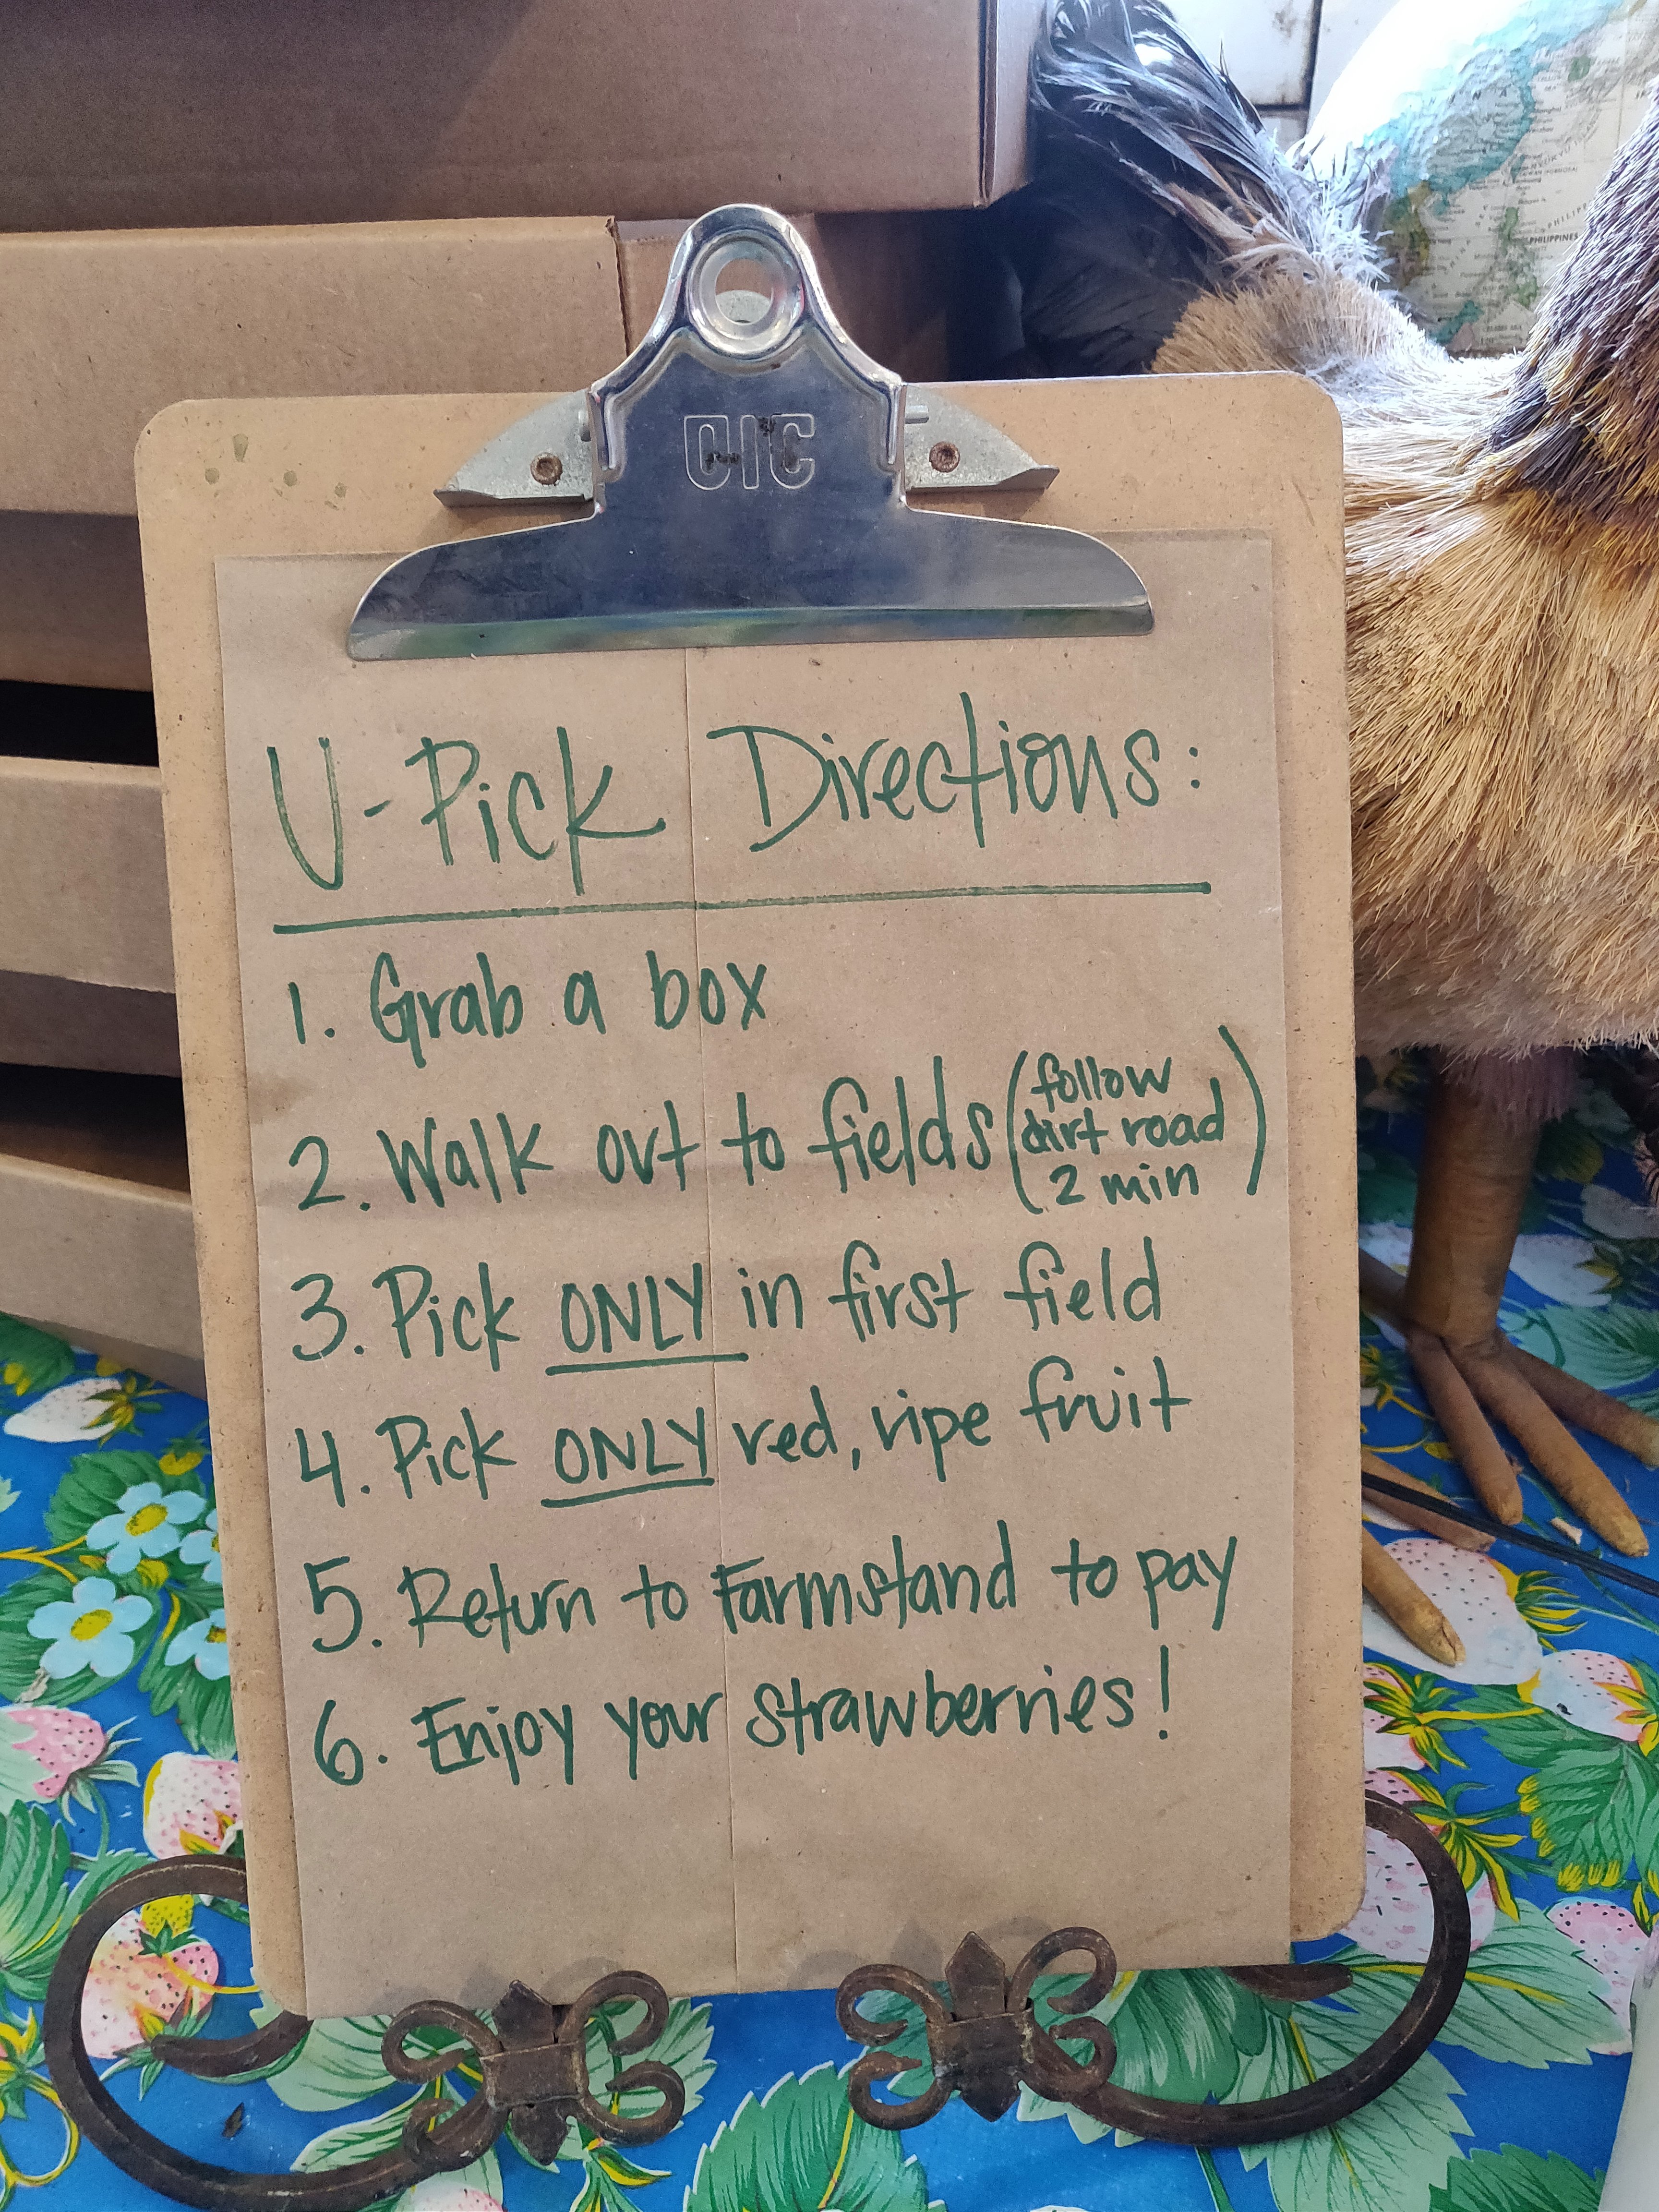 CIC
U-Pick Directions:
1. Grab a box
2. Walk out to fields (follow
dirt road
2 min)
3. Pick ONLY in first field
4. Pick ONLY red, ripe fruit
5. Return to Farmstand to pay
6. Enjoy your strawberries!
PHILIPPINES